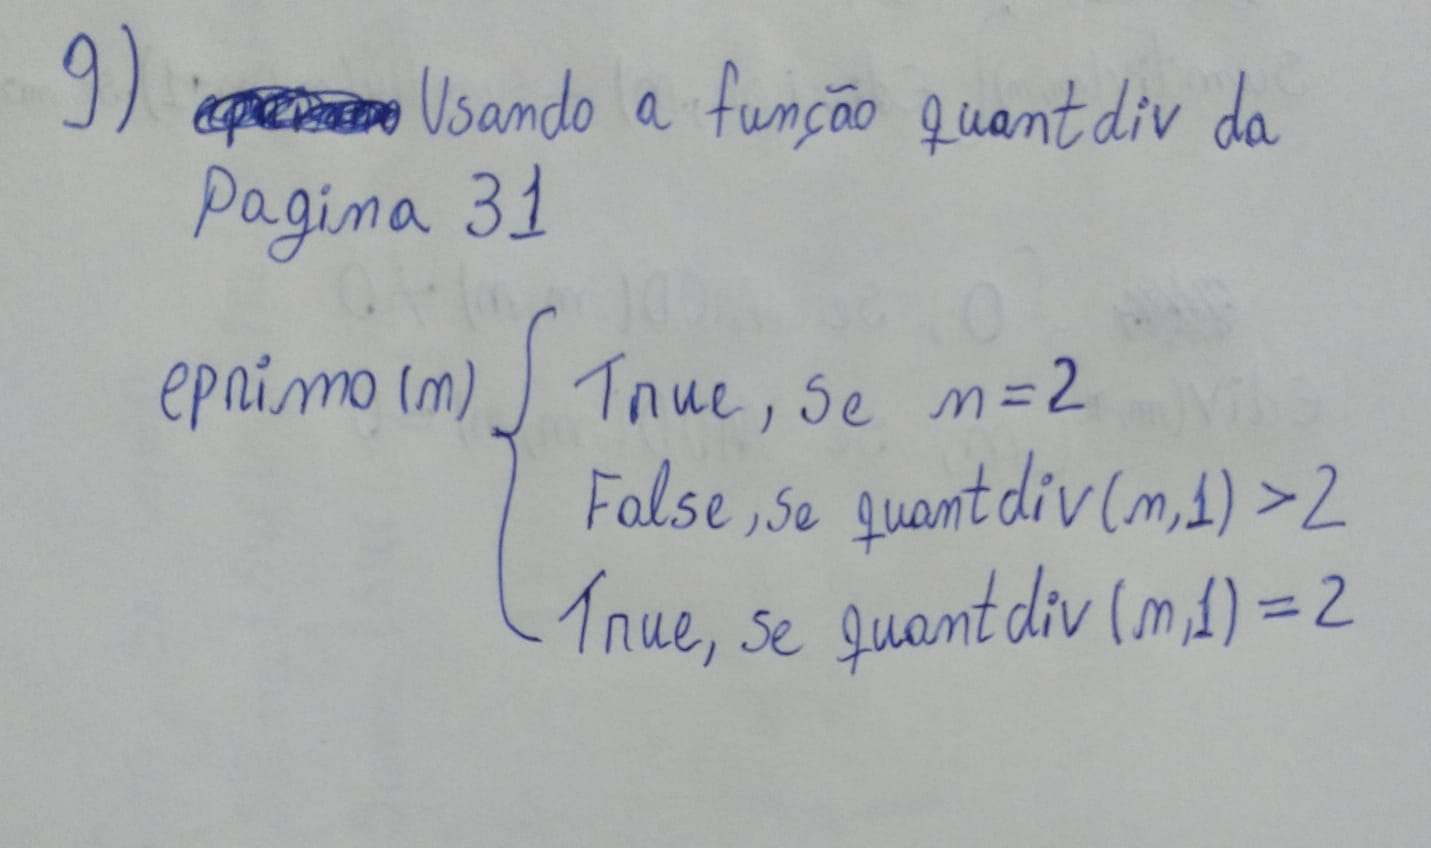 9) Usando a função quantdiv da
Pagina 31
eprimo(n) { True, se n=2
False, se quantdiv(n,1) >2
True, se quantdiv(n,1) = 2